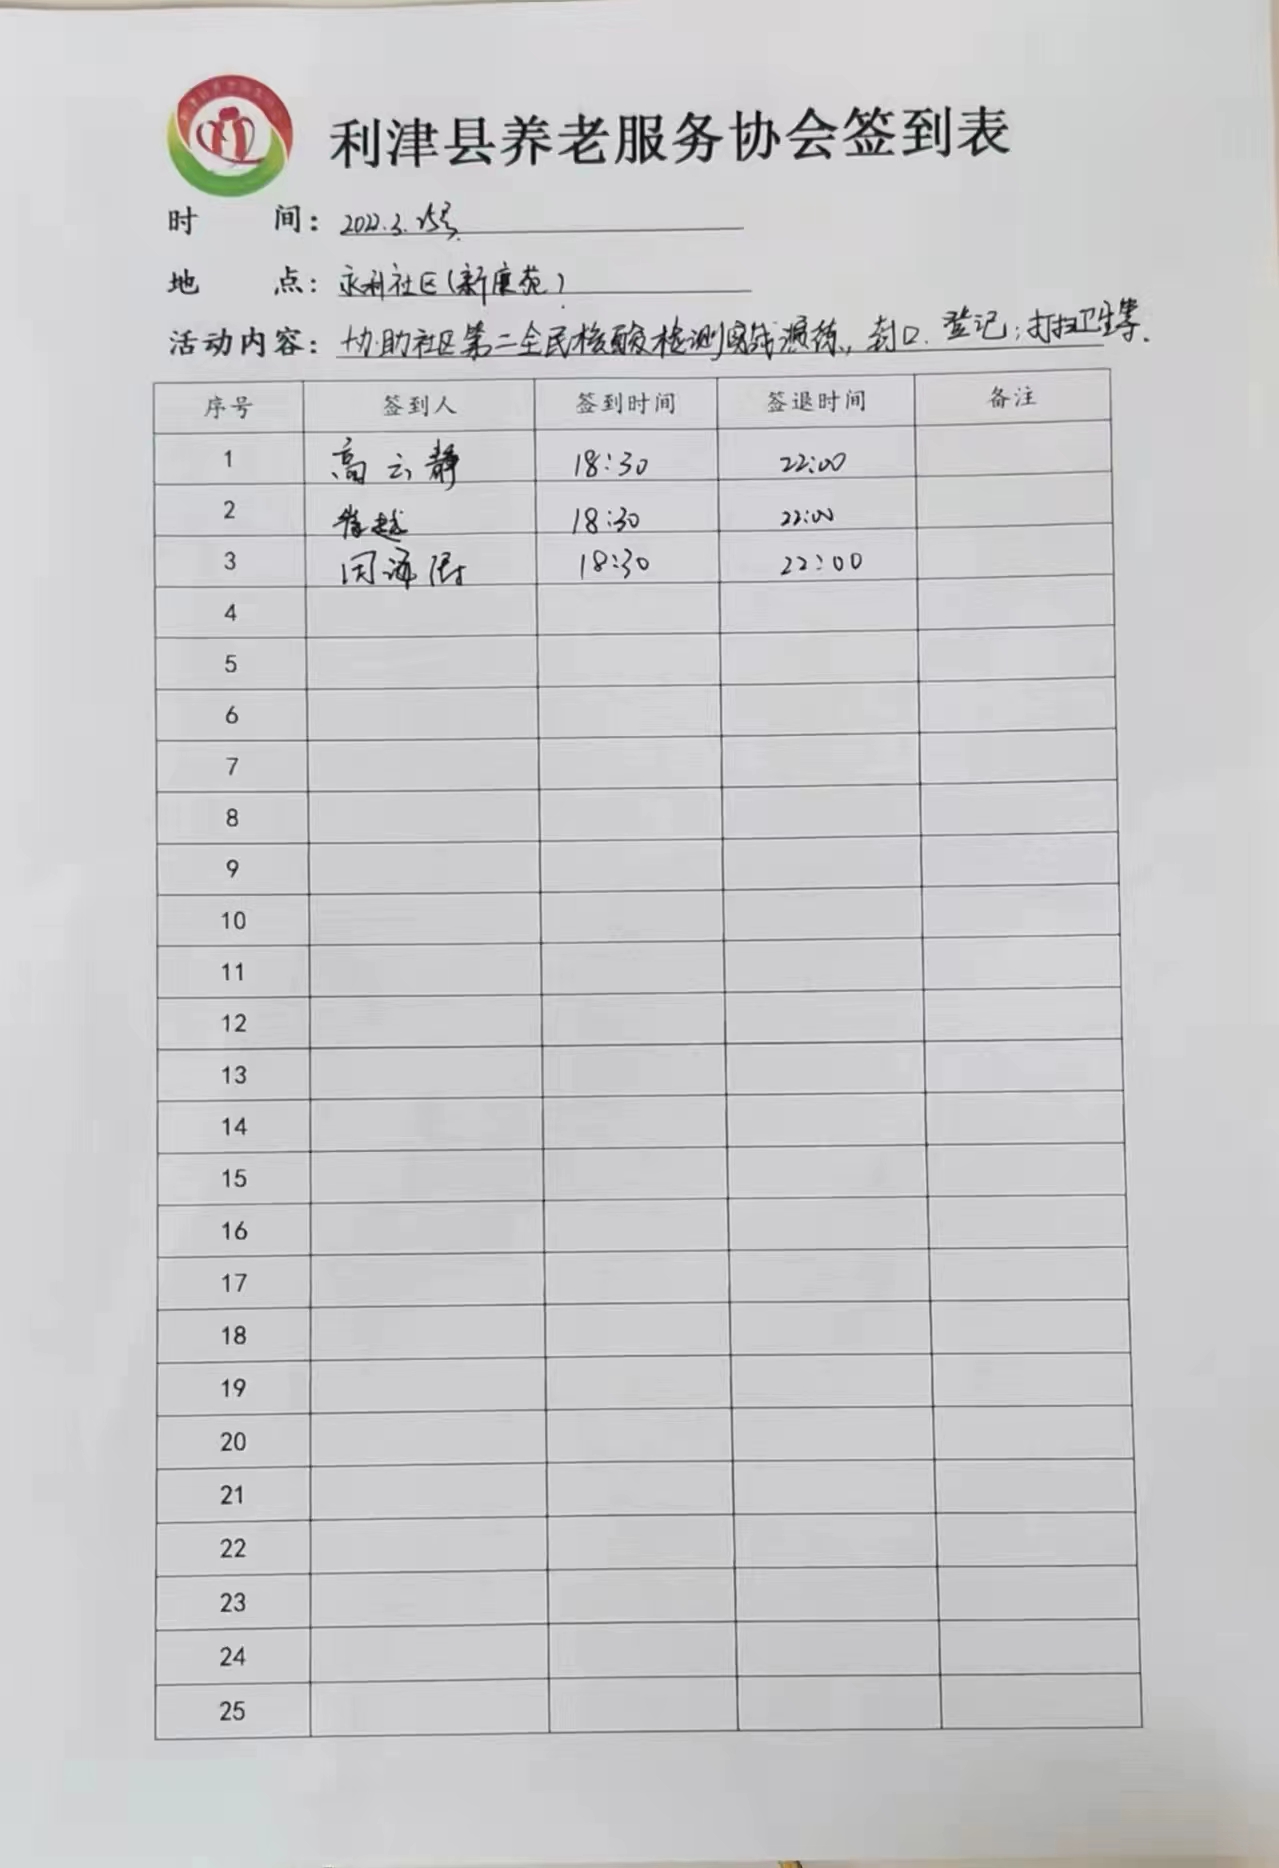 利津县养老服务协会签到表
时 间：2022.3.25号
地 点：永利社区(新康苑)
活动内容：协助社区第二全民核酸检测实战演练，封口、登记；打扫卫生等.
序号 签到人 签到时间 签退时间 备注
1 高云静 18:30 22:00
2 崔越 18:30 22:00
3 18:30 22:00
4
5
6
7
8
9
10
11
12
13
14
15
16
17
18
19
20
21
22
23
24
25